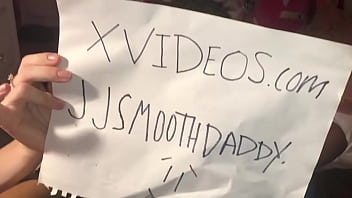 XVIDEOS.com
JJSMOOTHDADDY.